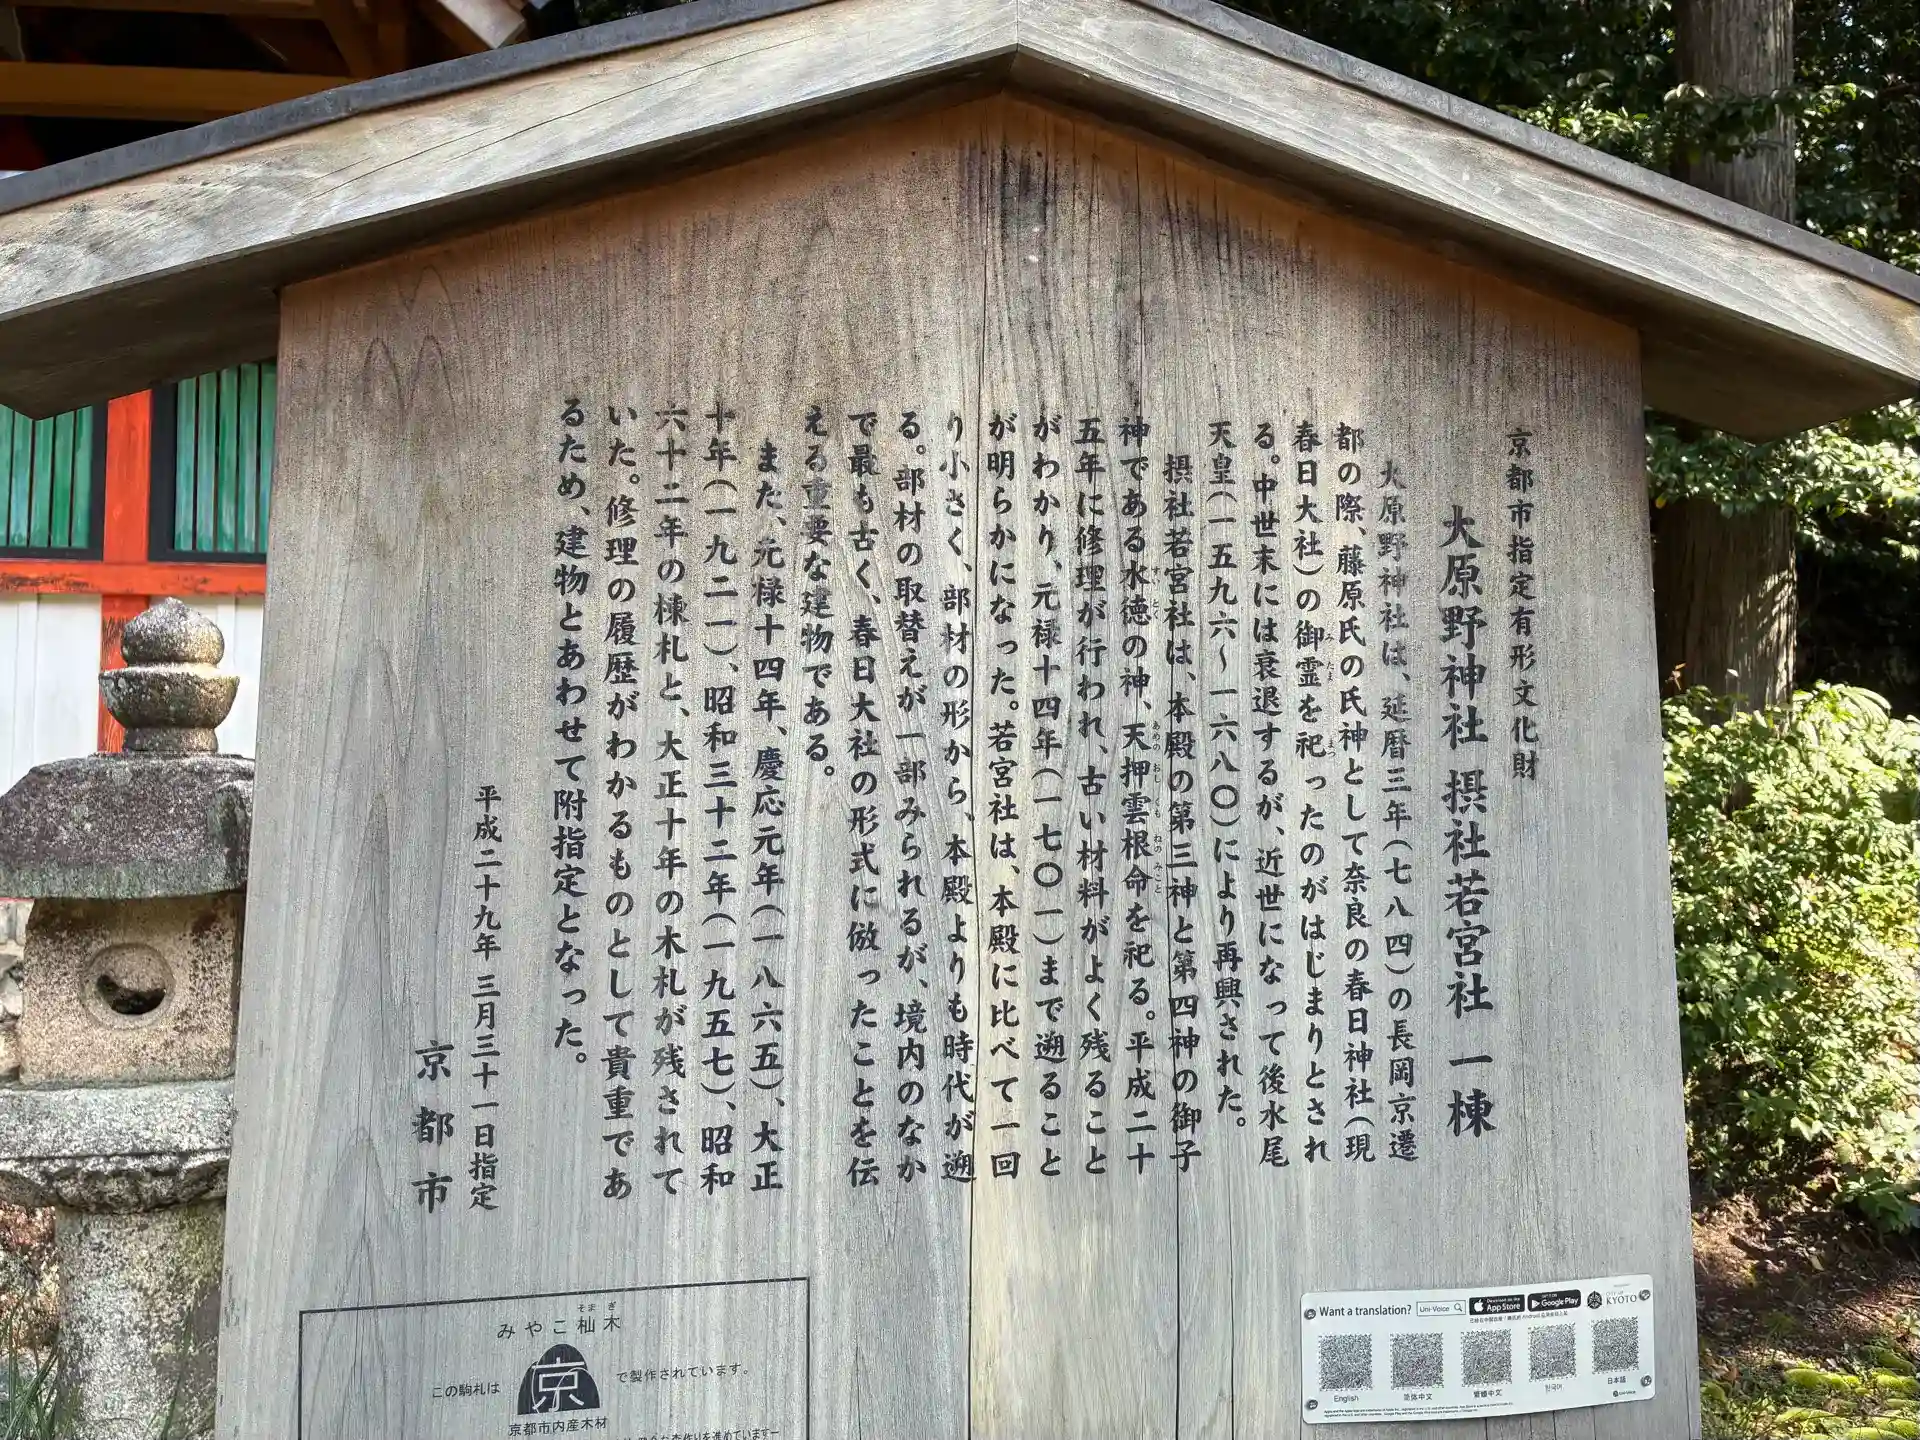 京都市指定有形文化財
大原野神社 摂社若宮社 一棟
大原野神社は、延暦三年(七八四)の長岡京遷
都の際、藤原氏の氏神として奈良の春日神社(現
春日大社)の御霊を祀ったのがはじまりとされ
る。中世末には衰退するが、近世になって後水尾
天皇(一五九六〜一六八〇)により再興された。
摂社若宮社は、本殿の第三神と第四神の御子
神である水徳の神、天押雲根命を祀る。平成二十
五年に修理が行われ、古い材料がよく残ること
がわかり、元禄十四年(一七〇一)まで遡ること
が明らかになった。若宮社は、本殿に比べて一回
り小さく、部材の形から、本殿よりも時代が遡
る。部材の取替えが一部みられるが、境内のなか
で最も古く、春日大社の形式に倣ったことを伝
える重要な建物である。
また、元禄十四年、慶応元年(一八六五)、大正
十年(一九二一)、昭和三十二年(一九五七)、昭和
六十二年の棟札と、大正十年の木札が残されて
いた。修理の履歴がわかるものとして貴重であ
るため、建物とあわせて附指定となった。
平成二十九年三月三十一日指定
京都市
みやこ杣木
そまぎ
この駒札は
京
で製作されています。
京都市内産木材
Want a translation?
Uni-Voice
App Store
Google Play
KYOTO
English
简体中文
繁體中文
한국어
日本語